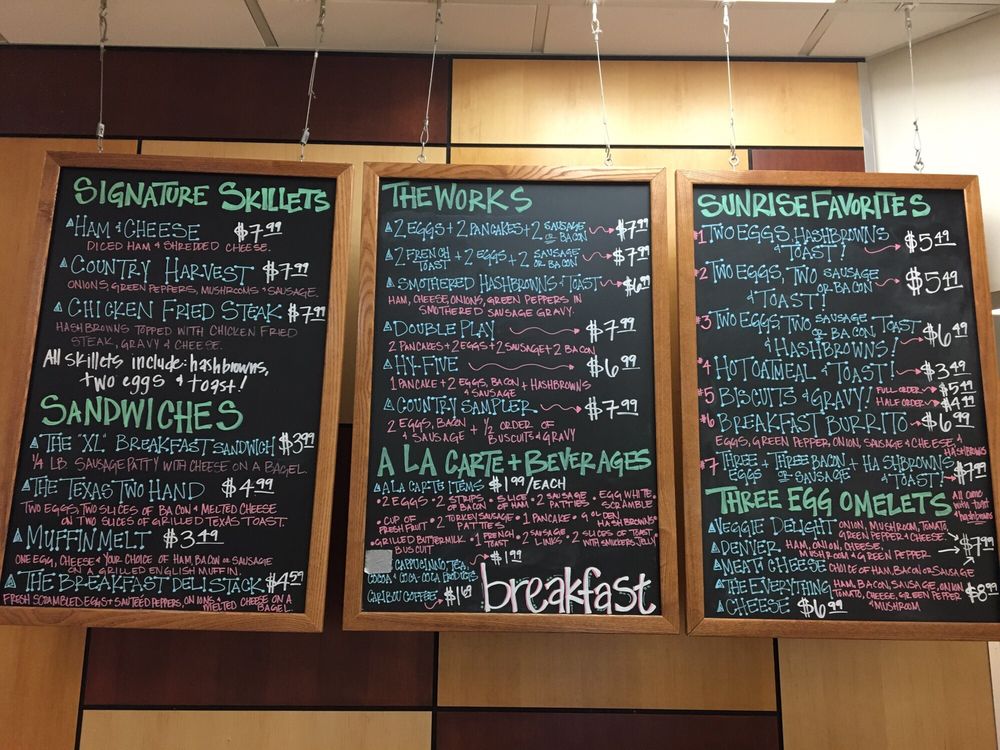 SIGNATURE SKILLETS
HAM & CHEESE $7.99
DICED HAM & SHREDDED CHEESE.
COUNTRY HARVEST $7.99
ONIONS, GREEN PEPPERS, MUSHROOMS & SAUSAGE.
CHICKEN FRIED STEAK $7.99
HASHBROWNS TOPPED WITH CHICKEN FRIED
STEAK, GRAVY & CHEESE.
All skillets include: hashbrowns,
two eggs & toast!
SANDWICHES
THE "XL" BREAKFAST SANDWICH $3.99
1/4 LB. SAUSAGE PATTY WITH CHEESE ON A BAGEL.
THE TEXAS TWO HAND $4.99
TWO EGGS, TWO SLICES OF BACON & MELTED CHEESE
ON TWO SLICES OF GRILLED TEXAS TOAST.
MUFFIN MELT $3.49
ONE EGG, CHEESE & YOUR CHOICE OF HAM, BACON OR SAUSAGE
ON A GRILLED ENGLISH MUFFIN.
THE BREAKFAST DELI STACK $4.99
FRESH SCRAMBLED EGGS & SAUTEED PEPPERS, ONIONS & MELTED CHEESE ON A
BAGEL.
THE WORKS
2 EGGS + 2 PANCAKES + 2 SAUSAGE OR BACON $7.99
2 FRENCH TOAST + 2 EGGS + 2 SAUSAGE OR BACON $7.99
SMOTHERED HASHBROWNS & TOAST $6.99
HAM, CHEESE, ONIONS, GREEN PEPPERS IN
SMOTHERED SAUSAGE GRAVY.
DOUBLE PLAY $7.99
2 PANCAKES + 2 EGGS + 2 SAUSAGE + 2 BACON
HY-FIVE $6.99
1 PANCAKE + 2 EGGS, BACON & SAUSAGE + HASHBROWNS
COUNTRY SAMPLER $7.99
2 EGGS, BACON & SAUSAGE + 1/2 ORDER OF BUSCUITS & GRAVY
A LA CARTE + BEVERAGES
A LA CARTE ITEMS $1.99/EACH
• 2 EGGS • 2 STRIPS OF BACON • SLICE OF HAM • 2 SAUSAGE PATTIES • EGG WHITE SCRAMBLE •
• CUP OF FRESH FRUIT • 2 TURKEY SAUSAGE PATTIES • 1 PANCAKE • GOLDEN HASHBROWNS •
• GRILLED BUTTERMILK BUSCUIT • 1 FRENCH TOAST • 2 SAUSAGE LINKS • 2 SLICES OF TOAST WITH SMUCKERS JELLY
CAPPUCCINO, TEA, $1.99
COCOA & COCA-COLA PRODUCTS
CARIBOU COFFEE $1.69
breakfast
SUNRISE FAVORITES
#1 TWO EGGS, HASHBROWNS
& TOAST! $5.49
#2 TWO EGGS, TWO SAUSAGE OR BACON
& TOAST! $5.49
#3 TWO EGGS, TWO SAUSAGE OR BACON, TOAST
& HASHBROWNS! $6.49
#4 HOT OATMEAL & TOAST! $3.49
#5 BISCUITS & GRAVY! FULL ORDER $5.49
HALF ORDER $4.49
#6 BREAKFAST BURRITO $6.99
EGGS, GREEN PEPPER, ONION, SAUSAGE & CHEESE, & HASHBROWNS
#7 THREE EGGS + THREE BACON OR SAUSAGE + HASHBROWNS
& TOAST! $7.99
THREE EGG OMELETS All come with toast & hashbrowns
VEGGIE DELIGHT ONION, MUSHROOM, TOMATO,
GREEN PEPPER & CHEESE
DENVER HAM, ONION, CHEESE,
MUSHROOM & GREEN PEPPER $7.99
MEAT & CHEESE CHOICE OF HAM, BACON OR SAUSAGE
THE EVERYTHING HAM, BACON, SAUSAGE, ONION
TOMATO, CHEESE, GREEN PEPPER & MUSHROOM $8.99
CHEESE $6.99